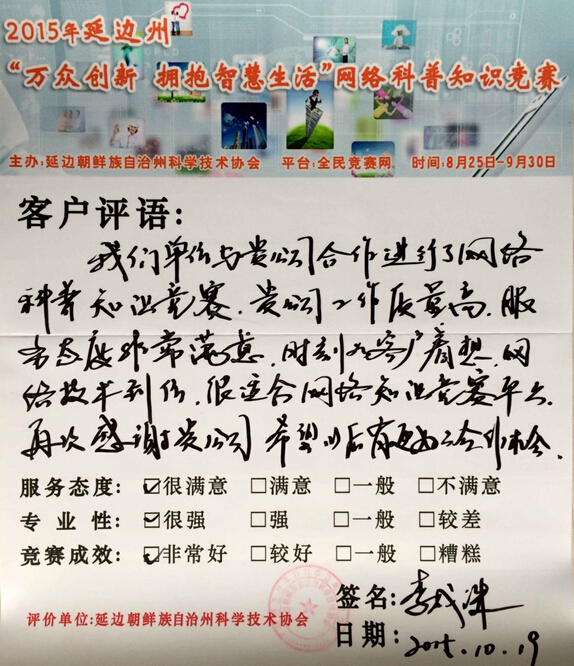 2015年延边州
“万众创新 拥抱智慧生活”网络科普知识竞赛
主办:延边朝鲜族自治州科学技术协会 平台:全民竞赛网 时间:8月25日-9月30日
客户评语:
我们单位与贵公司合作进行了网络
科普知识竞赛.贵公司工作质量高.服
务态度非常满意.时刻为客户着想.网
络技术到位.很适合网络知识竞赛平台.
再次感谢贵公司 希望以后有更好的合作机会.
服务态度: ☑很满意 □满意 □一般 □不满意
专业性: ☑很强 □强 □一般 □较差
竞赛成效: ☑非常好 □较好 □一般 □糟糕
评价单位:延边朝鲜族自治州科学技术协会
签名:李成洙
日期:2015.10.19